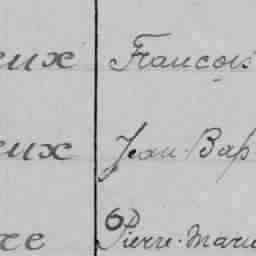 eux François
eux Jean-Bap
re Pierre-Marie